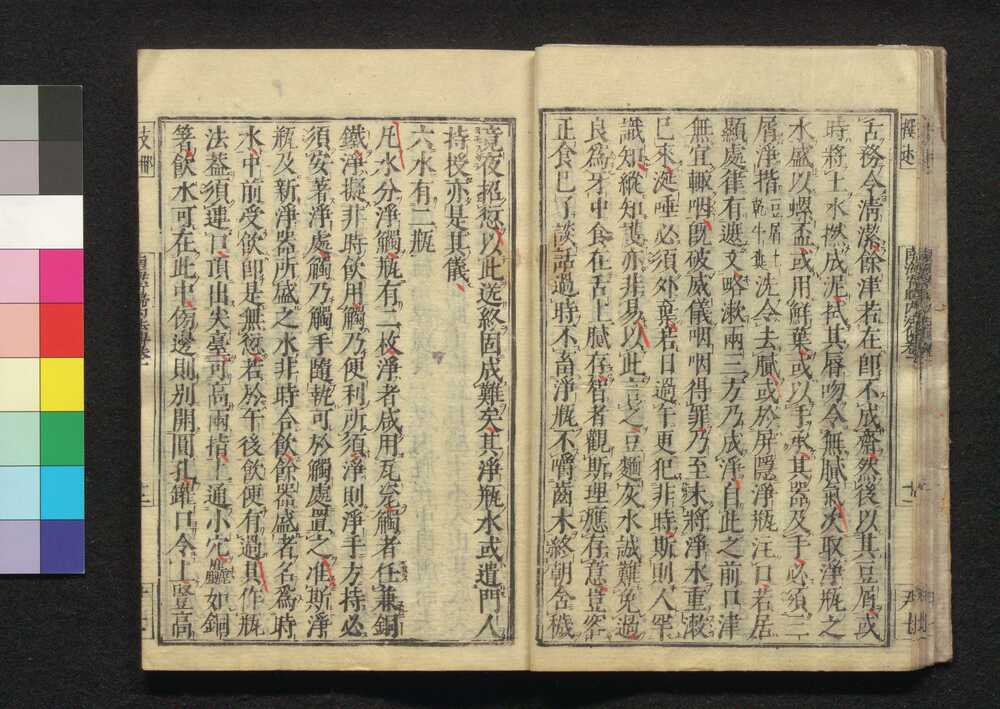 舌務令清潔餘津若在即不成齋然後以其豆屑或
時將土水撚成泥拭其脣吻令無膩氣次取淨瓶之
水盛以螺盃或用鮮葉或以手承其器及手必須三
屑淨揩豆屑土乾牛糞洗令去膩或於屏隱淨瓶注口若居
顯處律有遮文略漱兩三方乃成淨自此之前口津
無宜輒咽既破威儀咽咽得罪乃至未將淨水重漱
已來涎唾必須外棄若日過午更犯非時斯則人罕
識知縱知護亦非易以此言之豆麵灰水誠難免過
良為牙中食在舌上膩存智者觀斯理應存意豈容
正食已了談話過時不畜淨瓶不嚼齒木終朝含穢
竟夜招愆以此送終固成難矣其淨瓶水或遣門人
持授亦是其儀
六水有二瓶
凡水分淨觸瓶有二枚淨者咸用瓦瓷觸者任兼銅
鐵淨擬非時飲用觸乃便利所須淨則淨手方持必
須安著淨處觸乃觸手隨執可於觸處置之准斯淨
瓶及新淨器所盛之水非時合飲餘器盛者名為時
水中前受飲即是無愆若於午後飲便有過其作瓶
法蓋須連口頂出尖臺可高兩指上通小穴麤如銅
箸飲水可在此中傍邊則別開圓孔罐口令上豎高